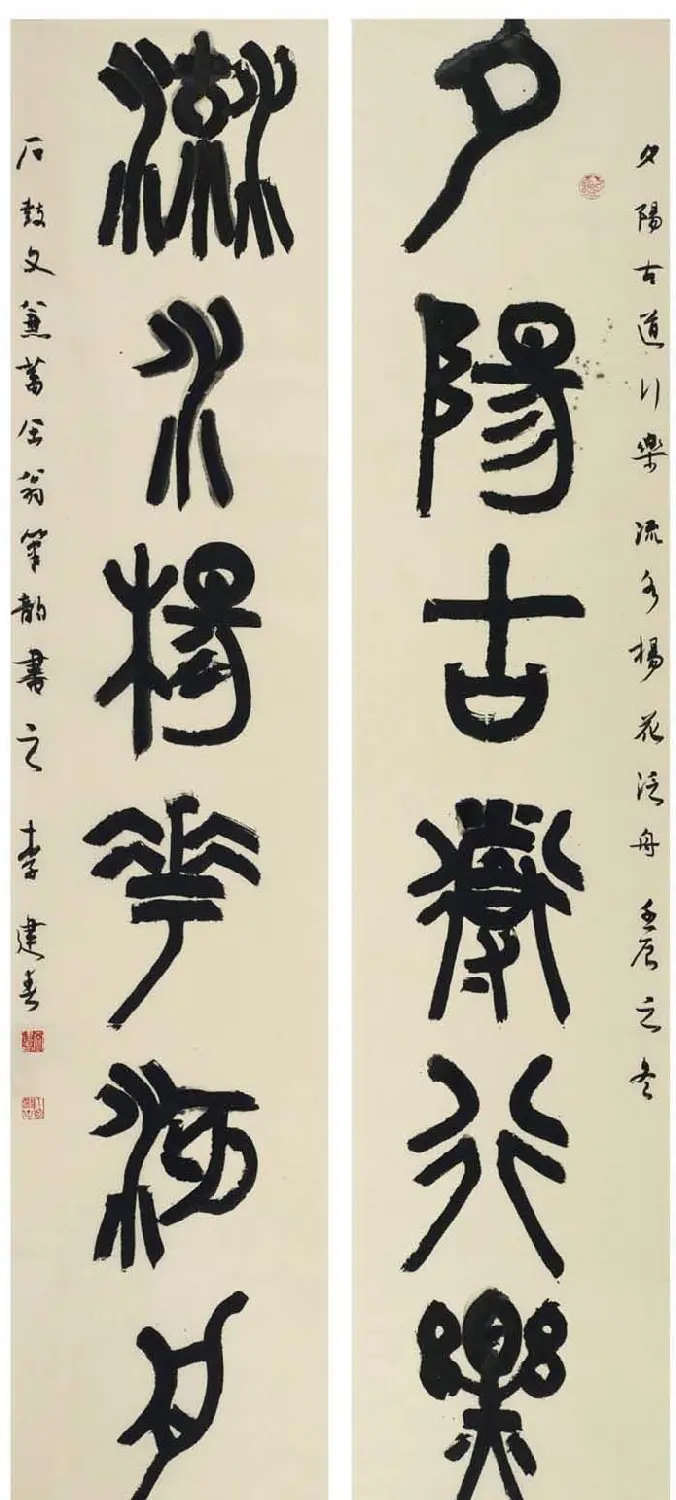 夕陽古道行樂 流水楊花泛舟 壬辰之冬
夕陽古道行樂
流水楊花泛舟
石鼓文兼蓄缶翁筆韻書之 李建春